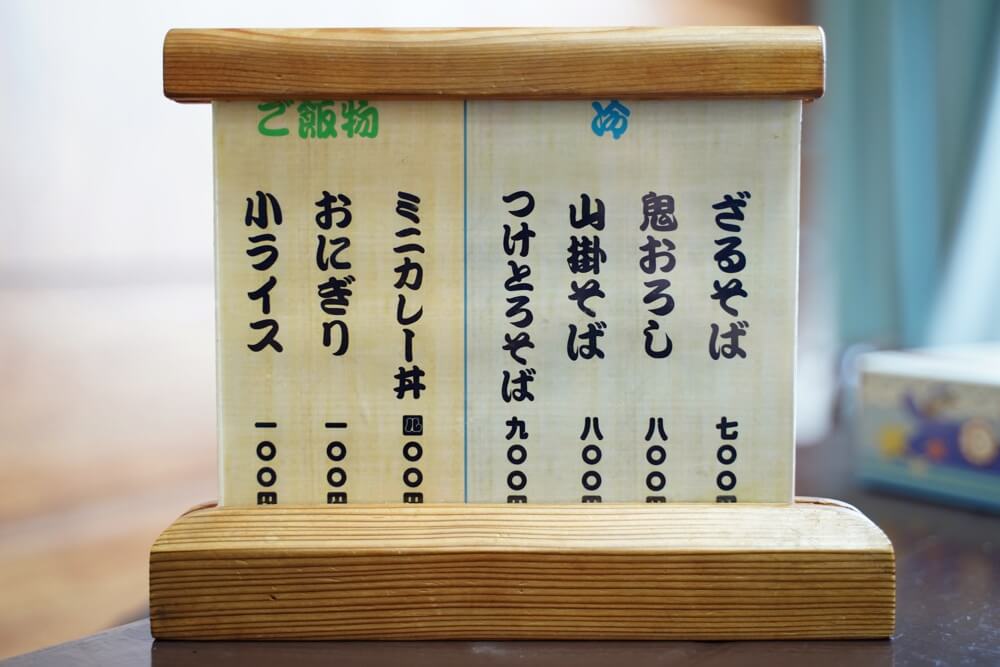 冷
ざるそば 七〇〇円
鬼おろし 八〇〇円
山掛そば 八〇〇円
つけとろそば 九〇〇円
ご飯物
ミニカレー丼 四〇〇円
おにぎり 一〇〇円
小ライス 一〇〇円